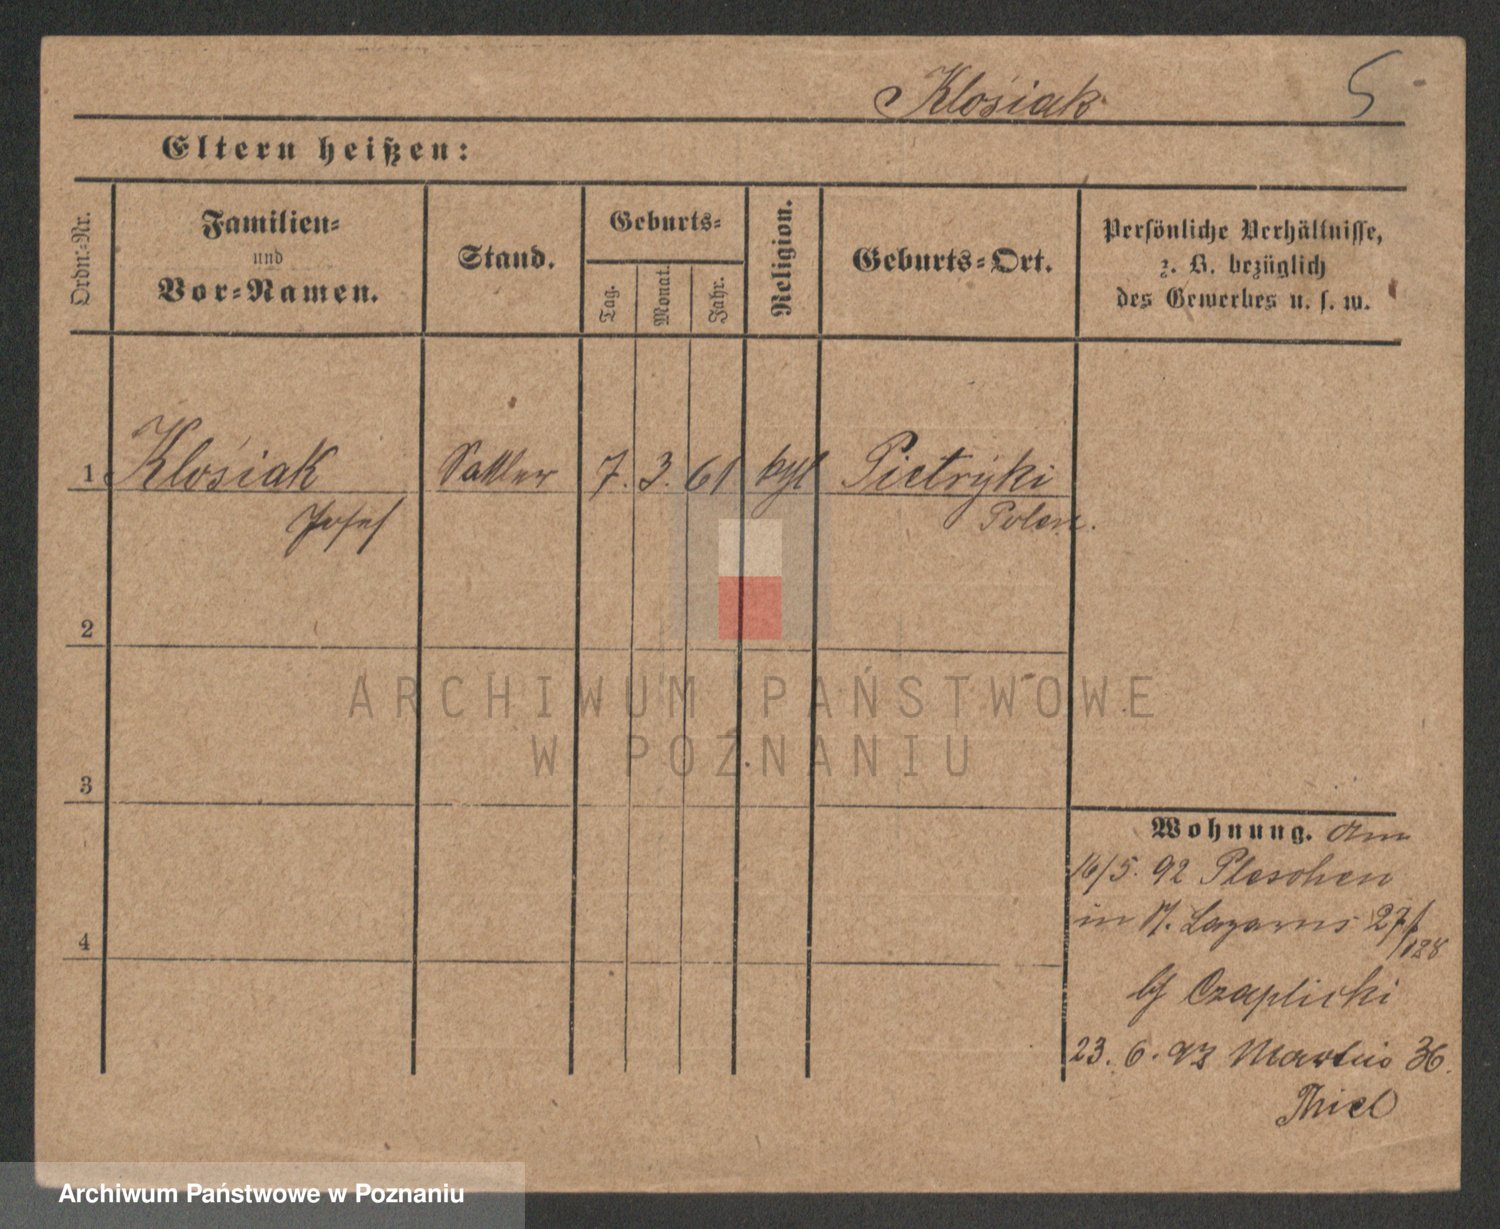 Klosiak 5
Eltern heißen:
Ordn.-Nr.
Familien-
und
Vor-Namen.
Stand.
Geburts-
Tag.
Monat.
Jahr.
Religion.
Geburts-Ort.
Persönliche Verhältnisse,
z. B. bezüglich
des Gewerbes u. s. w.
1 Klośiak Sattler 7. 3. 61 kath Pietrzyki
Josef Polen.
2
ARCHIWUM PAŃSTWOWE
W POZNANIU
3
Wohnung. Am
16/5. 92 Pleschen
in St. Lazarus 27/
128
4
bf Czaplicki
23. 6. 93 Martin 36.
Thiel
Archiwum Państwowe w Poznaniu